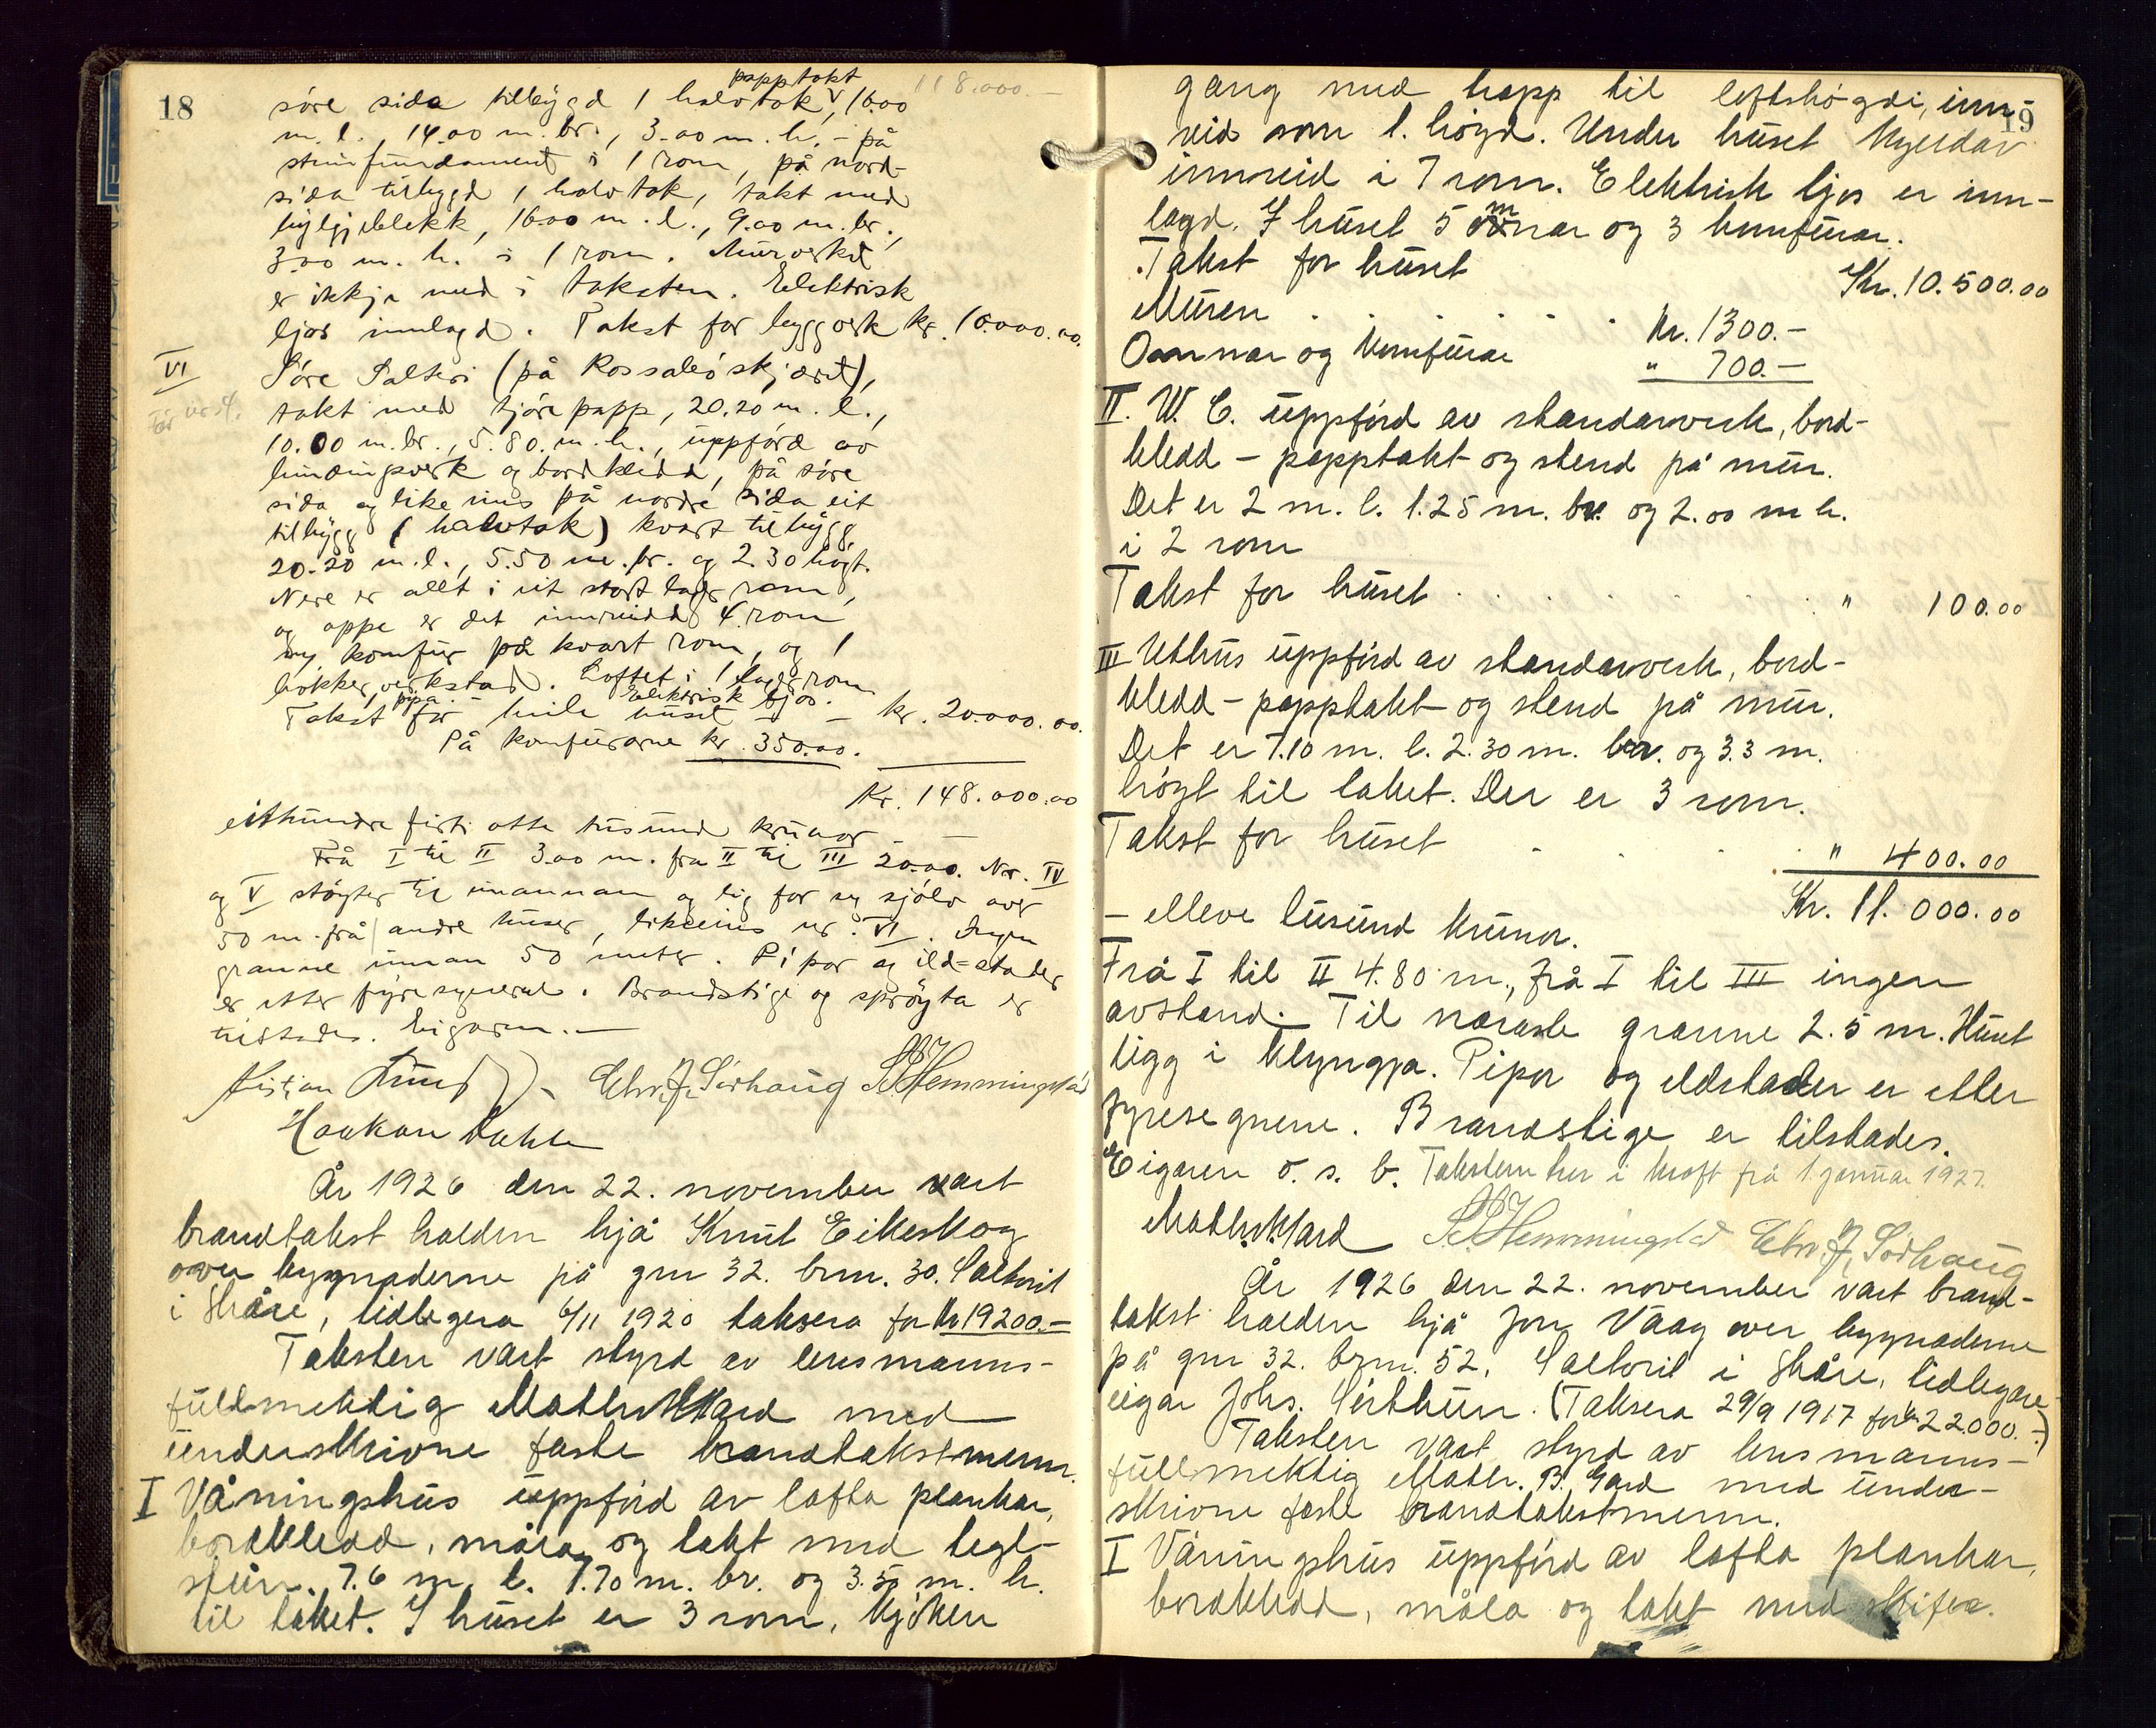 18
118.000.-
papptakt
søre sida tilbygd 1 halvtak, 16.00
m. l., 14.00 m. br., 3.00 m. h. - på
steinfundament i 1 rom, på nord-
sida tilbygd 1 halvtak, takt med
bylgjeblekk, 16.00 m. l., 9.00 m. br.,
3.00 m. h. i 1 rom. Murverket
er ikkje med i taksten. Elektrisk
ljos innlagd. Takst for byggverk kr. 10.000.00.
VI
Søre Salteri (på Rossabøskjæret),
takt med tjørepapp, 20.20 m. l.,
10.00 m. br., 5.80. m. h., uppførd av
bindingsverk og bordkledd, på søre
sida og likeeins på nordre sida eit
tilbygg (halvtak) kvart tilbygg
20.20 m. l., 5.50 m. br. og 2.30 høgt.
Nere er allt i eit stort lagerrom,
og oppe er det innreidd 4 rom
og komfur på kvart rom, og 1
bøkkerverkstad. Loftet i 1 lagerrom
pipa. - Elektrisk ljos.
Takst for heile huset - - kr. 20.000.00.
På komfurarne kr. 350.00.
Kr. 148.000.00
eithundre førti otte tusund krunor - -
Frå I til II 3.00 m. fra II til III 20.00. Nr. IV
og V støyter til einannan og lig for seg sjølv over
50 m. frå andre huser, likeeins nr. VI. Ingen
granne innan 50 meter. Pipor og ild-stader
er etter fyresegnerne. Brandstige og sprøyta er
tilstades. Eigaren. -
Kristian Chr. J. Sørhaug S. Hemmingstad
Haakon Dahle
År 1926 den 22. november vart
brandtakst halden hjå Knut Eikeskog
over bygnaderne på gnr 32. brnr. 30. Saltveit
i Skåre, tidlegera 6/11 1920 taksera for kr 19200.-
Taksten vart styrd av lensmanns-
fullmektig Math. B. Gard med
underskrivne faste brandtakstmenn.
I Våningshus uppførd av lafta plankar,
bordkledd, måla og takt med tegl-
stein. 7.6 m. l. 7.70 m. br. og 3.50 m. h.
til taket. I huset er 3 rom, kjøken
19
gang med trapp til loftshøgdi, inn-
reid som 1. høgd. Under huset kjellar
innreid i 7 rom. Elektrisk ljos er inn-
lagd. I huset 5 omnar og 3 komfurar.
Takst for huset Kr. 10.500.00
Muren . . . . . Kr. 1300.-
Omnar og komfurar " 700.-
II. W. C. uppførd av standarverk, bord-
kledd - papptakt og stend på mur.
Det er 2 m. l. 1.25 m. br. og 2.00 m h.
i 2 rom
Takst for huset . . . . . . " 100.00
III Uthus uppførd av standarverk, bord-
kledd - papptakt og stend på mur.
Det er 7.10 m. l. 2.30 m. br. og 3.3 m.
høgt til taket. Der er 3 rom.
Takst for huset . . . . " 400.00
Kr. 11. 000.00
- elleve tusund krunor.
Frå I til II 4.80 m., frå I til III ingen
avstand. Til næraste granne 2.5 m. Huset
ligg i klyngja. Pipor og eldstader er etter
fyresegnene. Brandstige er tilstades.
Eigaren o. s. b. Taksten har i kraft frå 1. januar 1927.
Math. B. Gard S. Hemmingstad Chr. J. Sørhaug
År 1926 den 22. november vart brand-
takst halden hjå Jon Våag over bygnaderne
på gnr 32. brnr. 52, Saltveit i Skåre, tidlegare
eigar Johs. Seithun. (Taksera 29/9 1917 for kr 22.000.-)
Taksten vart styrd av lensmanns-
fullmektig Math. B. Gard med under-
skrivne faste brandtakstmenn.
I Våningshus uppførd av lafta plankar,
bordkledd, måla og takt med skifer.